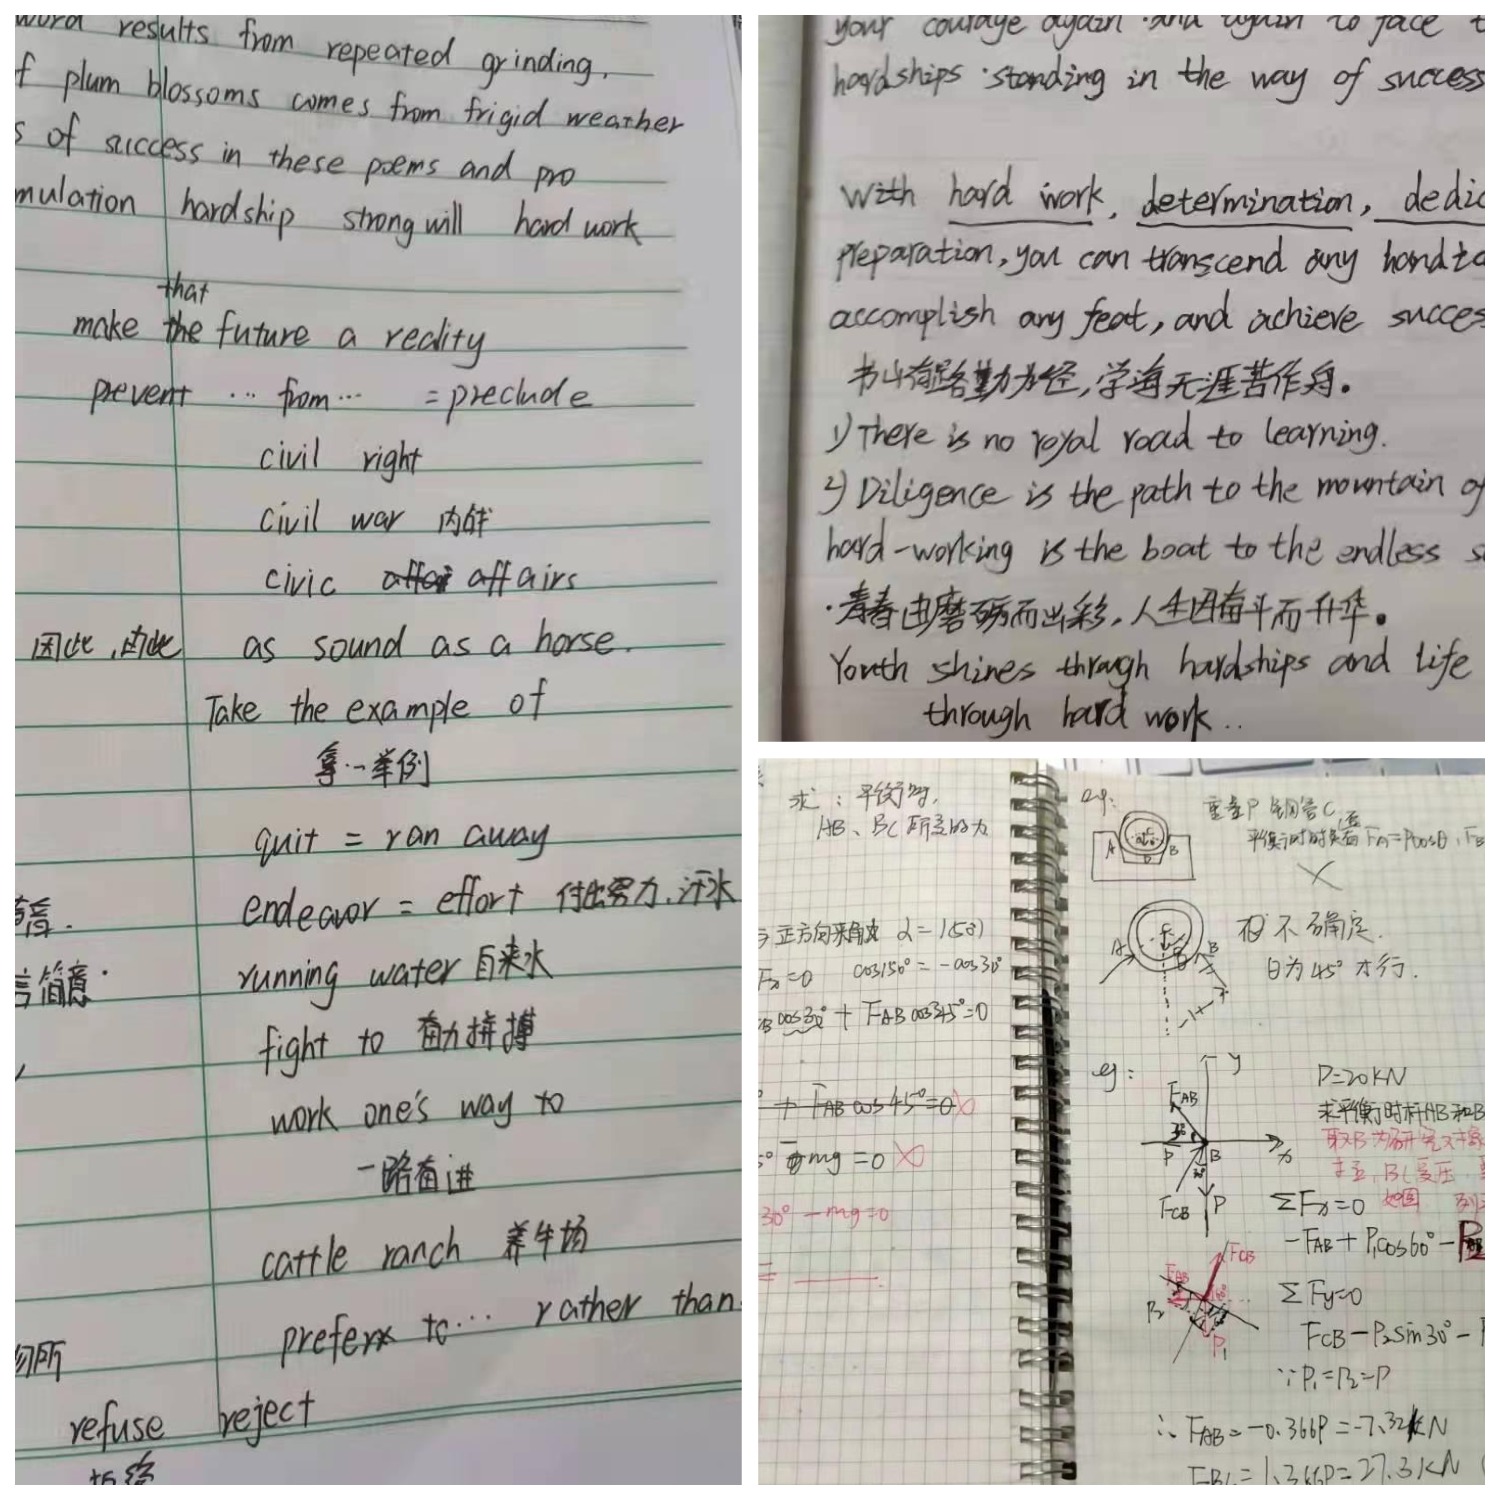 word results from repeated grinding.
f plum blossoms comes from frigid weather
s of success in these poems and pro
mulation hardship strong will hard work
that
make the future a reality
prevent ... from ... = preclude
civil right
civil war 内战
civic affairs
因此,由此 as sound as a horse.
Take the example of
拿…举例
quit = ran away
endeavor = effort 付出努力、汗水
running water 自来水
言简意.
fight to 奋力拼搏
work one's way to
一路奋进
cattle ranch 养牛场
prefer to ... rather than
refuse reject
your courage again and again to face t
hardships standing in the way of success
With hard work, determination, dedic
preparation, you can transcend any
accomplish any feat, and achieve succes
书山有路勤为径,学海无涯苦作舟。
1) There is no royal road to learning.
2) Diligence is the path to the mountain of
hard-working is the boat to the endless s
·青春由磨砺而出彩,人生因奋斗而升华。
Youth shines through hardships and life
through hard work..
求:平衡时,
AB、BC所受的力
正方向来角度 α=150)
Fx=0 cos150°=-cos30°
cos30° + FAB cos45°=0
+ FAB cos45°=0
mg=0
30° - mg=0
eg:
重量P 钢管C
A B
F=Pcosθ
A B
不确定.
θ为45°才行.
eg:
y
FAB
P B x
FCB P
P=20KN
求平衡时杆AB和B
取B为研究对象
BC受压
ΣFx=0 如图
-FAB+P₁cos60°-
FCB
FAB
P₂
P₁
ΣFy=0
FCB-P₂sin30°-
∵P₁=P₂=P
∴FAB=-0.366P=-7.32KN
FBC=1.366P=27.3KN